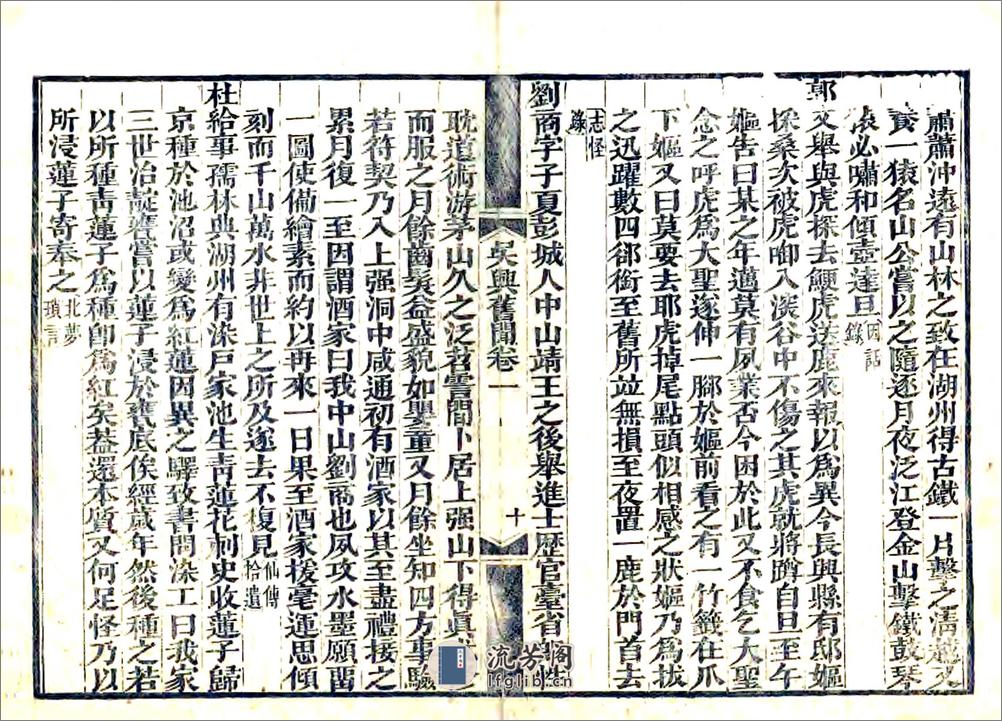 肅蕭沖遠有山林之致在湖州得古鐵一片擊之清越又
養一猿名山公嘗以之隨逐月夜泛江登金山擊鐵鼓琴
猿必嘯和傾壺達旦因話
錄
郭文舉與虎探去鯁虎送鹿來報以爲異今長興縣有邸嫗
採桑次被虎啣入深谷中不傷之其虎就將蹲自旦至午
嫗告曰某之年邁莫有夙業否今困於此又不食乞大聖
念之呼虎爲大聖遂伸一腳於嫗前看之有一竹籤在爪
下嫗又曰莫要去耶虎掉尾點頭似相感之狀嫗乃爲拔
之迅躍數四卻銜至舊所竝無損至夜置一鹿於門首去
志怪
錄
吳興舊聞卷一
十
劉商字子夏彭城人中山靖王之後舉進士歷官臺省性
耽道術游茅山久之泛苕霅間卜居上强山下得眞
而服之月餘齒髮益盛貌如嬰童又月餘坐知四方事驗
若符契乃入上强洞中咸通初有酒家以其至盡禮接之
累月復一至因謂酒家曰我中山劉商也夙攻水墨願畱
一圖使備繪素而約以再來一日果至酒家援毫運思傾
刻而千山萬水非世上之所及遂去不復見仙傳
拾遺
杜給事孺林典湖州有染戸家池生靑蓮花刺史收蓮子歸
京種於池沼或變爲紅蓮因異之驛致書問染工曰我家
三世治靛甕嘗以蓮子浸於甕底俟經歲年然後種之若
以所種靑蓮子爲種卽爲紅矣葢還本質又何足怪乃以
所浸蓮子寄奉之北夢
瑣言
流芳閣
lfglib.cn